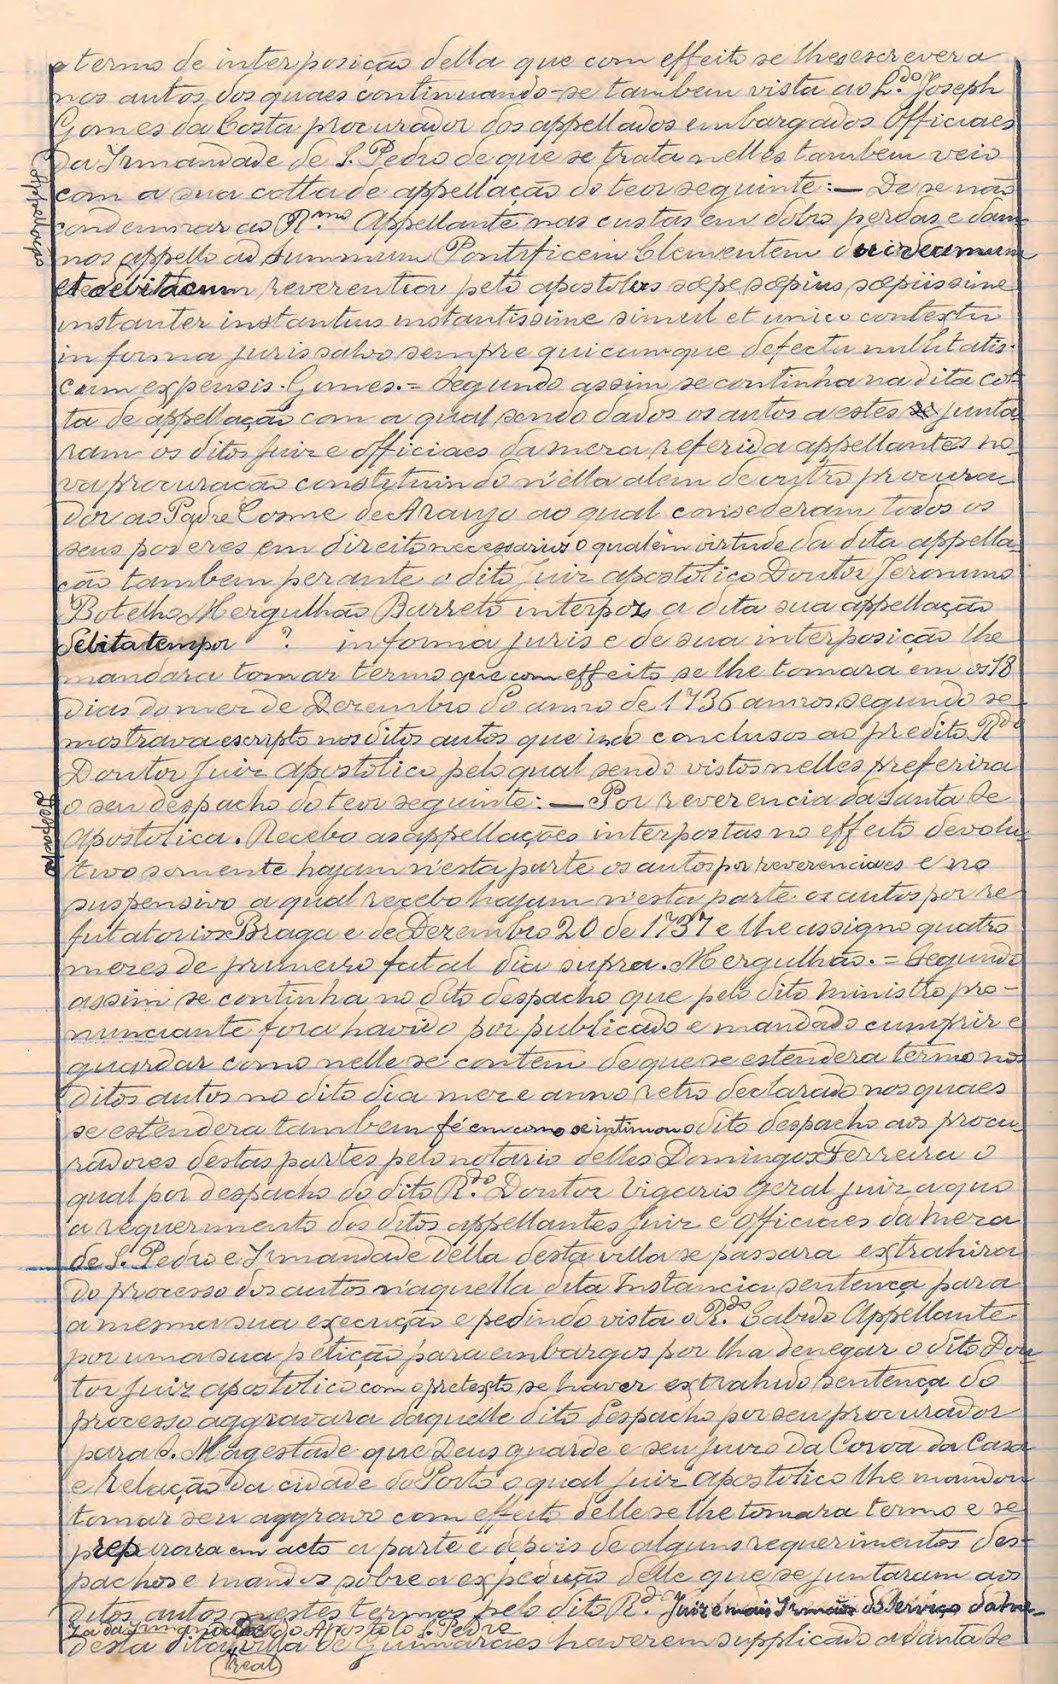 e termo de interposição della que com effeito se lhe escrevera
nos autos, dos quaes continuando-se tambem vista ao L.do Joseph
Gomes da Costa procurador dos appellados embargados Officiaes
da Irmandade de S. Pedro de que se trata nelles tambem veio
com a sua cotta de appellação do teor seguinte: — De se não
Appellação
condemnar ao R.mo Appellante nas custas em dobro perdas e dam-
nos appello ad summum Pontificem Clementem duodecimum
et debitacum reverentia peto apostolus sœpe sœpius sœpiissime
instanter instantius instantissime simul et unico contextu
in forma juris salvo sempre quicumque defectu nullitatis.
cum expensis. Gomes. = Segundo assim se continha na dita cot-
ta de appellação com a qual sendo dados os autos a estes se junta-
ram os ditos Juiz e officiaes da meza referida appellantes no-
va procuração constituindo n'ella alem de outro procura-
dor ao Padre Cosme de Araujo ao qual consederam todos os
seus poderes em direito necessarios o qual em virtude da dita appella-
ção tambem perante o dito Juiz apostolico Doutor Jeronimo
Botelho Mergulhão Barreto interpoz a dita sua appellação
debita tempor ? in forma juris e de sua interposição lhe
mandara tomar termo que com effeito se lhe tomara em os 18
dias do mez de Dezembro do anno de 1736 annos, segundo se
mostrava escripto nos ditos autos que indo conclusos ao predito R.do
Doutor Juiz apostolico pelo qual sendo vistos nelles preferira
o seu despacho do teor seguinte: — Por reverencia da Santa Se
Despacho
Apostolica. Recebo as appellações interpostas no effeito devolu-
tivo somente hajam n'esta parte os autos por reverenciaes e no
suspensivo a qual recebo hajam n'esta parte os autos por re
futatorios Braga e de Dezembro 20 de 1737 e lhe assigno quatro
mezes de primeiro fatal dia supra. Mergulhão. = Segundo
assim se continha no dito despacho que pelo dito Ministro pro-
nunciante fora havido por publicado e mandado cumprir e
guardar como nelle se contem de que se estendera termo nos
ditos autos no dito dia mez e anno retro declarado nos quaes
se estendera tambem fé em como se intimou o dito despacho aos procu-
radores destas partes pelo notario delles Domingos Ferreira o
qual por despacho do dito R.do Doutor Vigario geral juiz a quo
a requerimento dos ditos appellantes Juiz e Officiaes da Meza
de S. Pedro e Irmandade della desta villa se passara extrahira
do processo dos autos n'aquella dita Instancia sentença para
a mesma sua execução e pedindo vista o R.do Cabido Appellante
por uma sua petição para embargos por lha denegar o dito Dou-
tor Juiz apostolico com o pretexto se haver extrahido sentença do
processo aggravara daquelle dito Despacho por seu procurador
para S. Magestade que Deus guarde e seu Juizo da Coroa da Casa
e Relação da cidade do Porto o qual Juiz apostolico lhe mandou
tomar seu aggravo com effeito delle se lhe tomara termo e se
preparara em acto a parte e depois de alguns requerimentos des-
pachos e mandos sobre a expedição delle que se juntaram aos
ditos autos nestes termos pelo dito R.do Juiz e mais Irmãos do Serviço da Me-
za da Irmandade do Apostolo S. Pedro
desta dita villa de Guimarães haverem supplicado a Santa Se
(real)